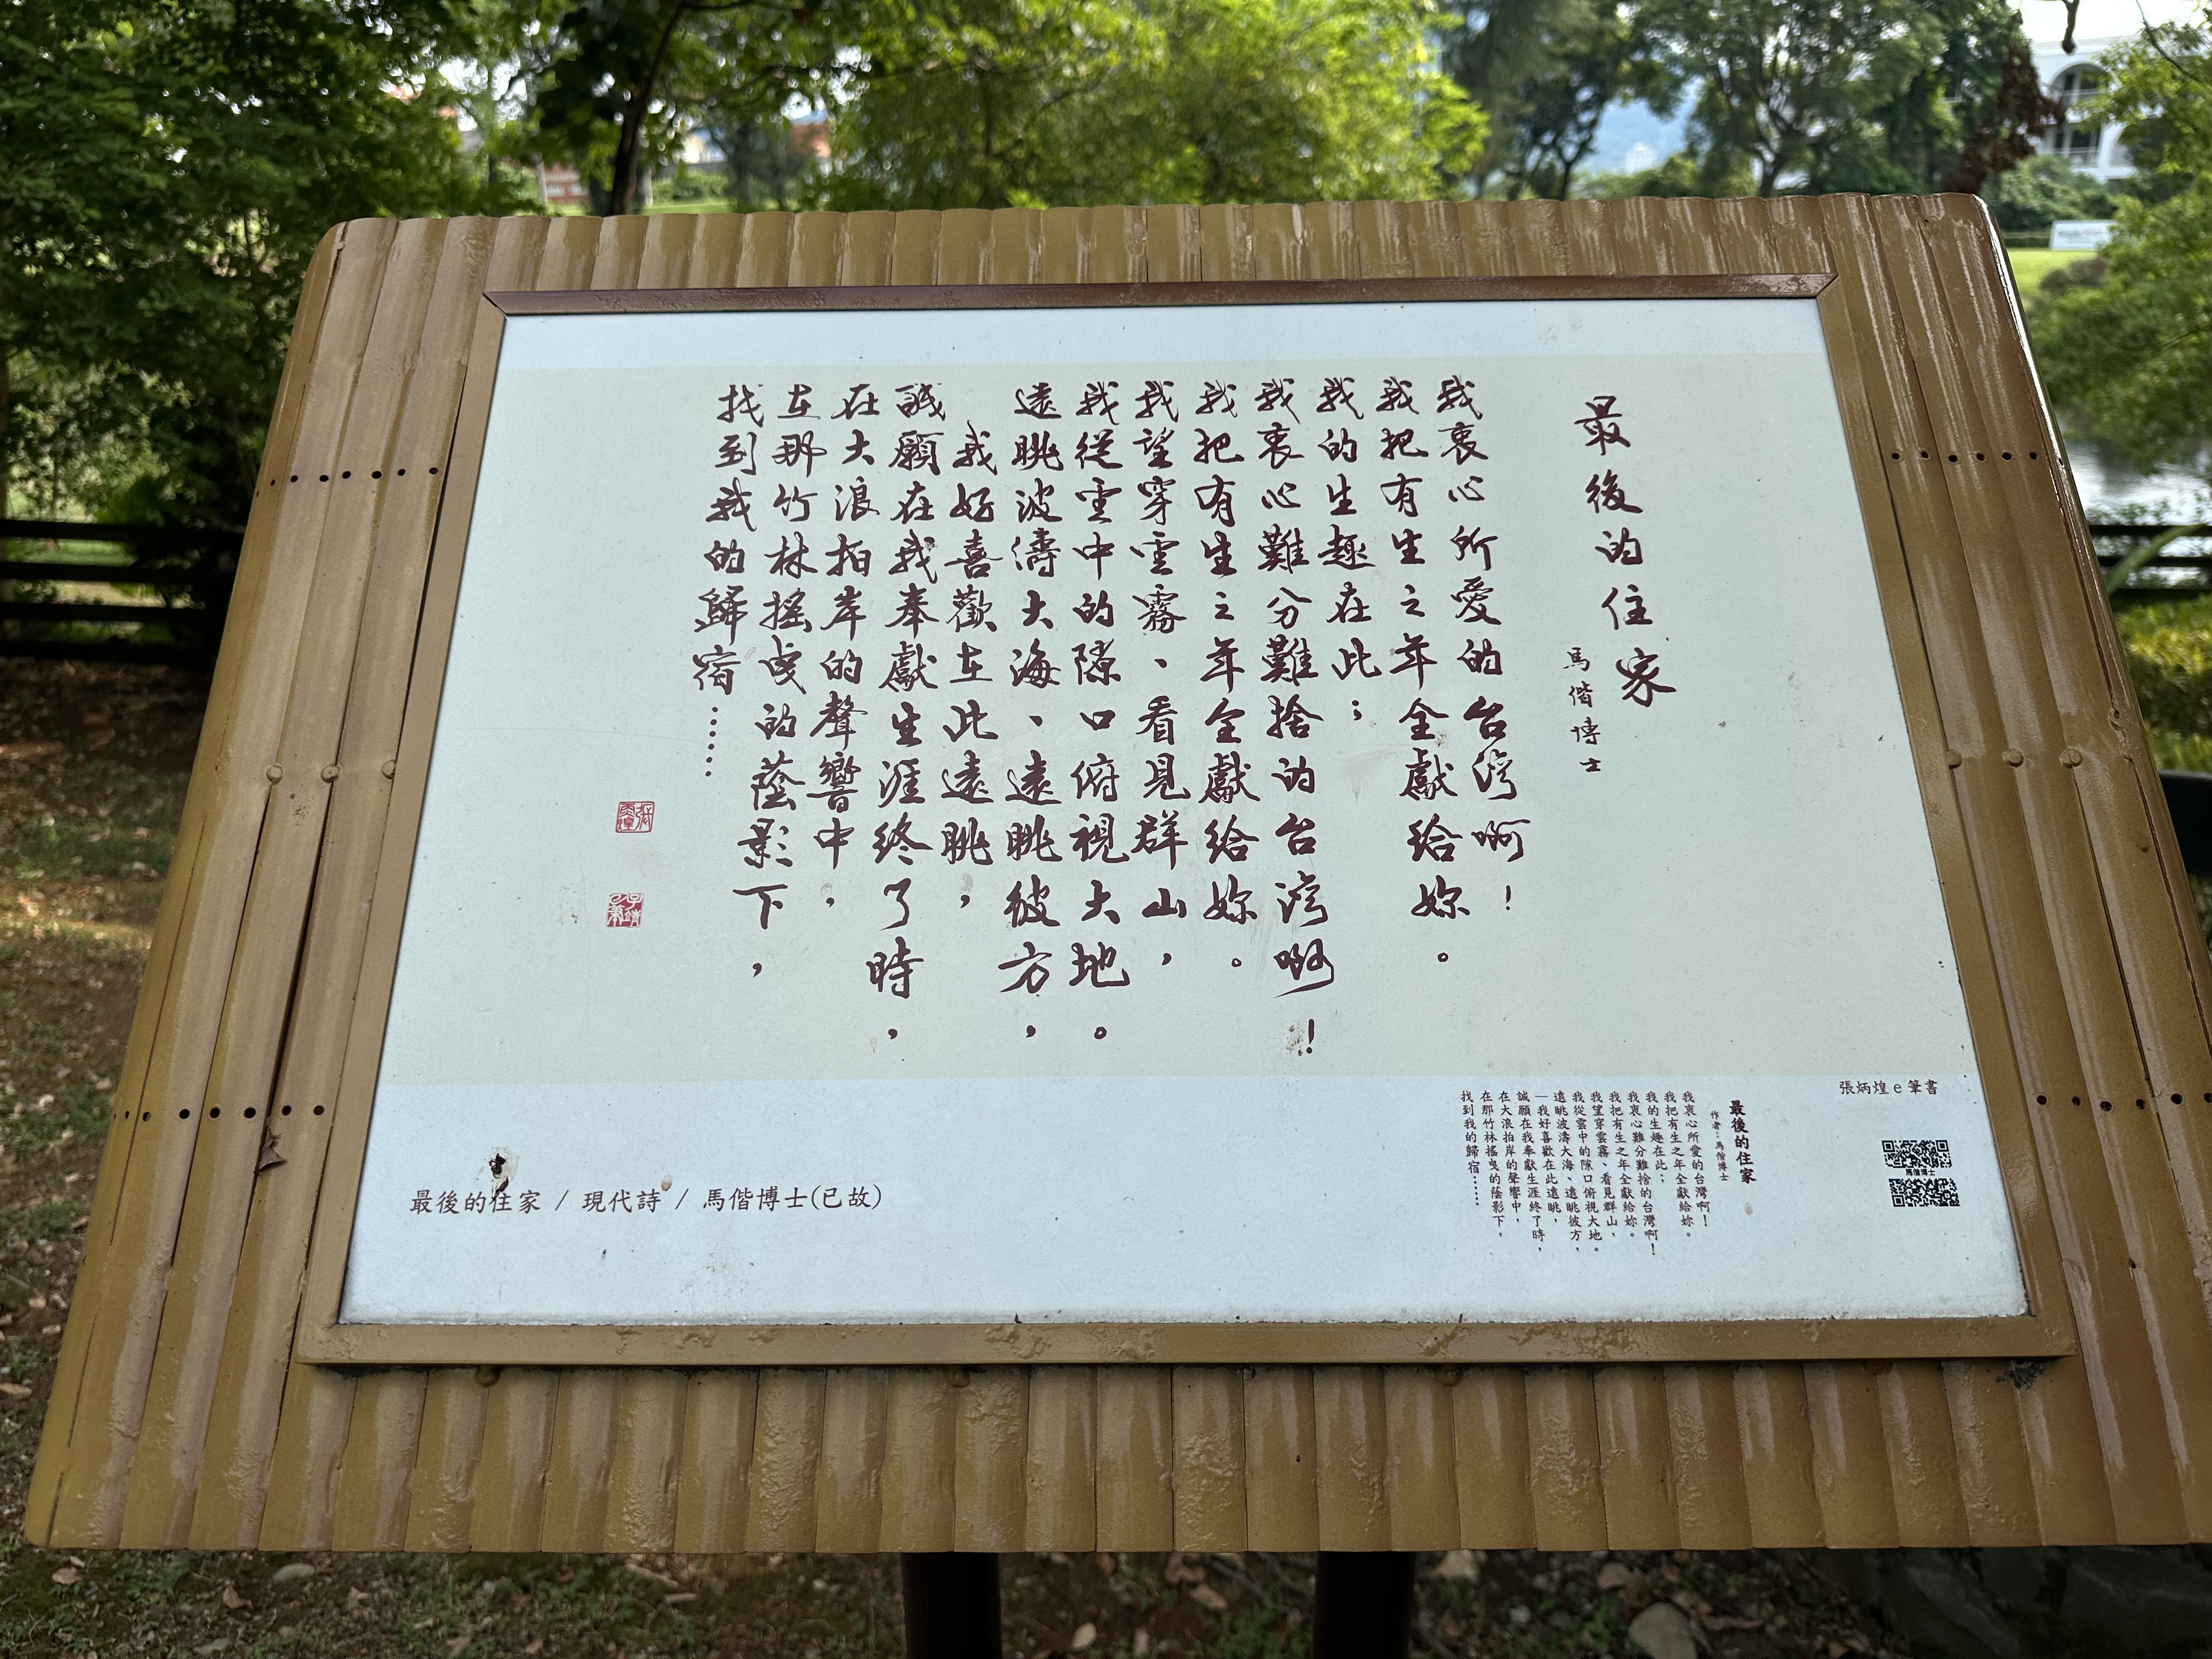 最後的住家
馬偕博士
我衷心所愛的台灣啊!
我把有生之年全獻給妳。
我的生趣在此;
我衷心難分難捨的台灣啊!
我把有生之年全獻給妳。
我望穿雲霧、看見群山,
我從雲中的隙口俯視大地。
遠眺波濤大海、遠眺彼方,
我好喜歡在此遠眺,
誠願在我奉獻生涯終了時,
在大浪拍岸的聲響中,
在那竹林搖曳的蔭影下,
找到我的歸宿……
張炳煌e筆書
馬偕博士
最後的住家
作者:馬偕博士
我衷心所愛的台灣啊!
我把有生之年全獻給妳。
我的生趣在此;
我衷心難分難捨的台灣啊!
我把有生之年全獻給妳。
我望穿雲霧、看見群山,
我從雲中的隙口俯視大地。
遠眺波濤大海、遠眺彼方,
—我好喜歡在此遠眺,
誠願在我奉獻生涯終了時,
在大浪拍岸的聲響中,
在那竹林搖曳的蔭影下,
找到我的歸宿……
最後的住家 / 現代詩 / 馬偕博士(已故)